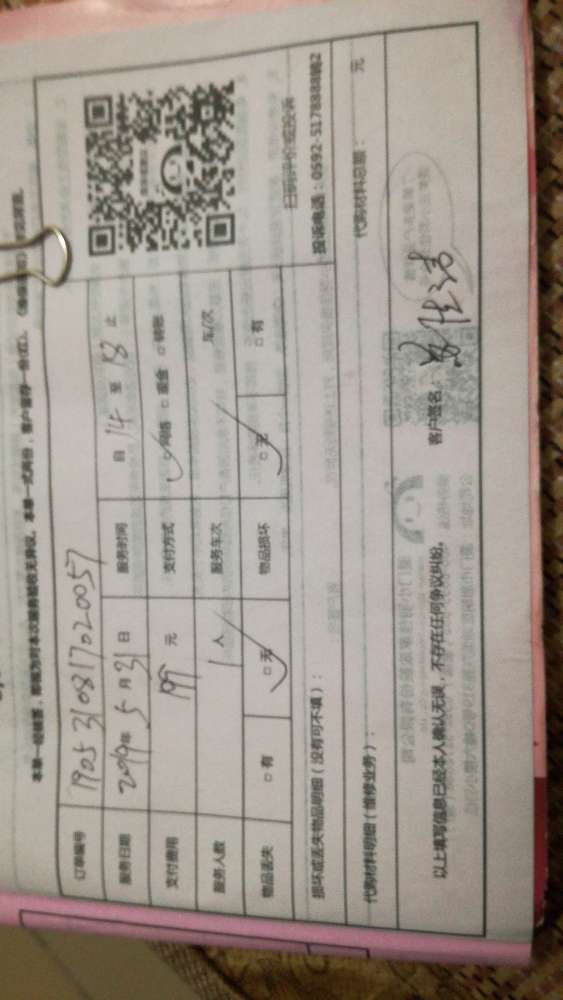 本单一经签署，即视为对本次服务验收无异议。本单一式两份，客户留存一份(红)。
订单编号 1905310817020057
服务日期 2019年 5 月 31 日 服务时间 自 14 至 18 止
支付费用 199 元 支付方式 ☑网络 □现金 □转账
服务人数 1 人 服务车次 车/次
物品丢失 □有 ☑无 物品损坏 ☑无 □有
扫码评价或投诉
损坏或丢失物品明细（没有可不填）： 投诉电话：0592-5178888转2
代购材料明细（维修业务）： 代购材料总额： 元
以上填写信息已经本人确认无误，不存在任何争议纠纷。 客户签名：